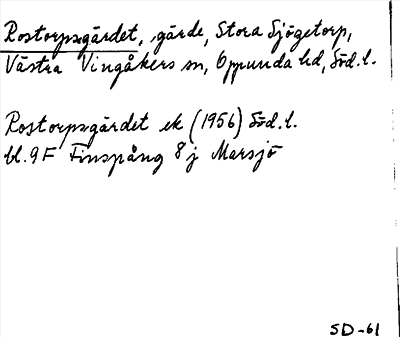 Rostorpsgärdet, gärde, Stora Sjögetorp,
Västra Vingåkers sn, Oppunda hd, Söd.l.
Rostorpsgärdet ek (1956) Söd.l.
bl. 9F Finspång 8j Marsjö
SD-61